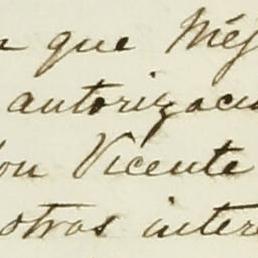 que Méj
autorizaci
don Vicente
otros inter